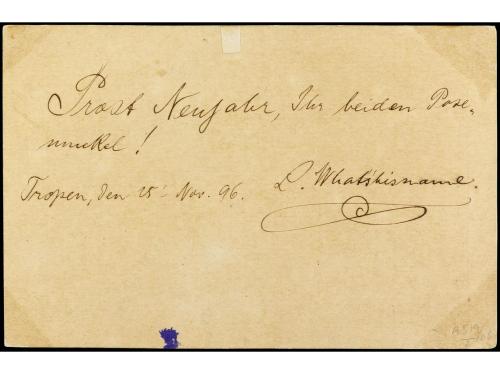 Prost Neujahr, Ihr beiden Pose-
muckel!
Tropen, den 25' Nov. 96.
L. Whatshisname.